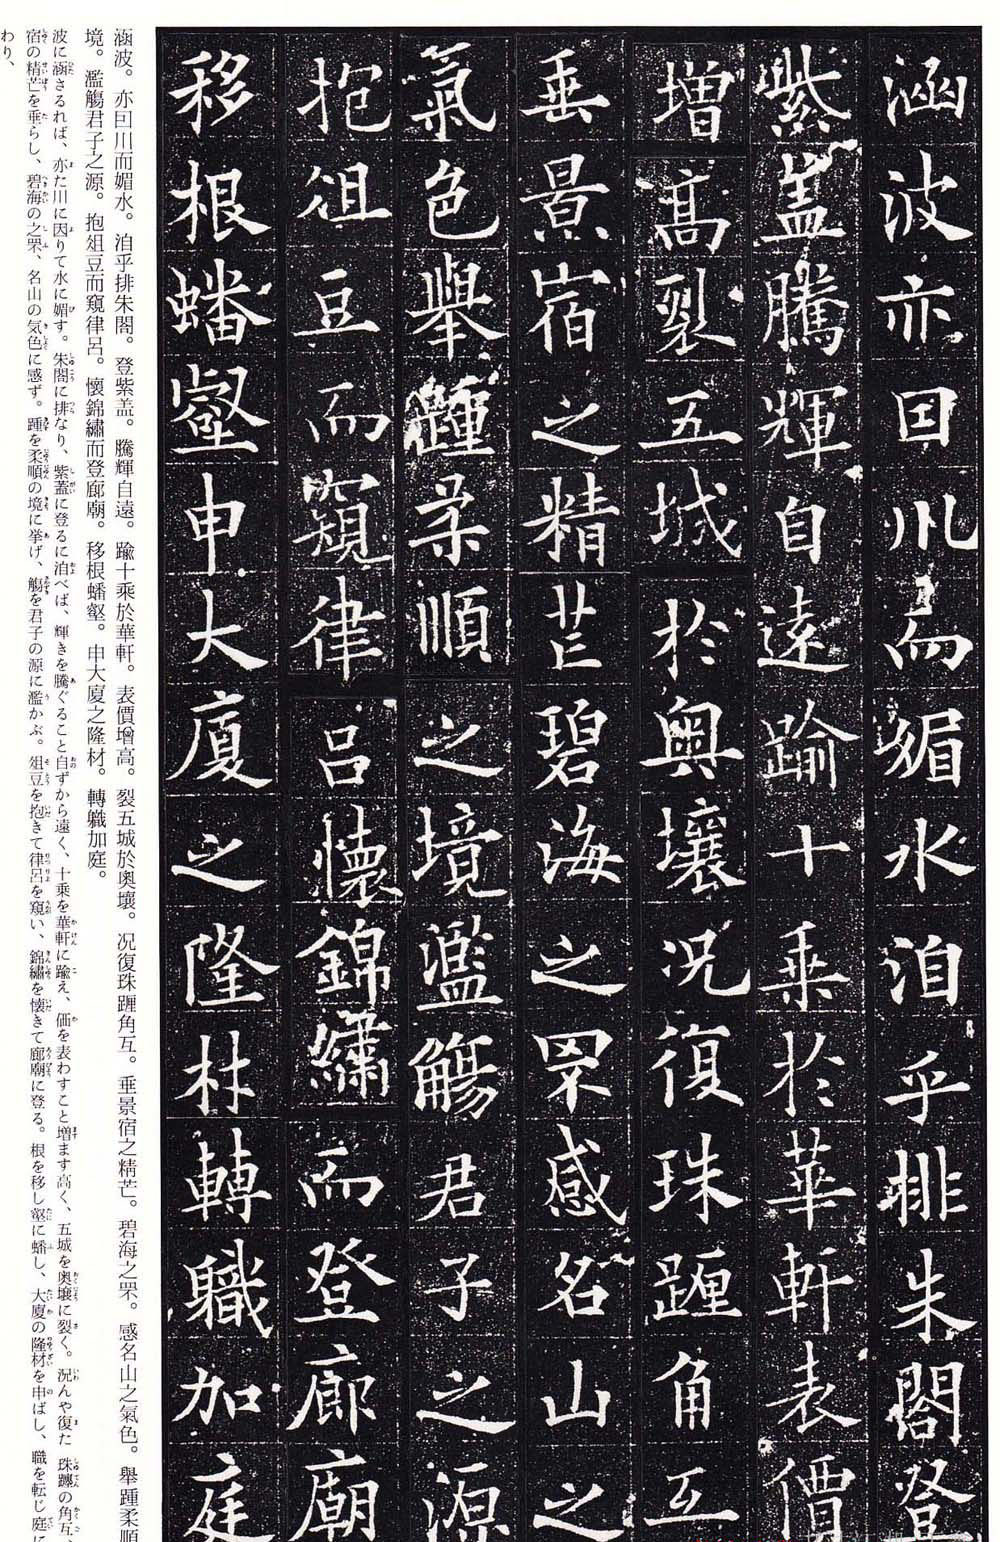 涵波亦囙川而媚水洎乎排朱閣登
紫盖騰輝自遠踰十乗於華軒表價
增高裂五城於奧壤况復珠躔角互
垂景宿之精芒碧海之罘感名山之
氣色舉踵柔順之境濫觴君子之源
抱俎豆而窺律呂懷錦繡而登廊廟
移根蟠壑申大廈之隆材轉軄加庭
涵波。亦囙川而媚水。洎乎排朱閣。登紫盖。騰輝自遠。踰十乘於華軒。表價增高。裂五城於奧壤。况復珠躔角互。垂景宿之精芒。碧海之罘。感名山之氣色。舉踵柔順
境。濫觴君子之源。抱俎豆而窺律呂。懷錦繡而登廊廟。移根蟠壑。申大廈之隆材。轉軄加庭。
波に涵さるれば、亦た川に因りて水に媚す。朱閣に排なり、紫蓋に登るに洎べば、輝きを騰ぐること自ずから遠く、十乗を華軒に踰え、価を表わすこと増ます高く、五城を奥壌に裂く。況んや復た 珠躔の角互、
宿の精芒を垂らし、碧海の之罘、名山の気色に感ず。踵を柔順の境に挙げ、觴を君子の源に濫かぶ。俎豆を抱きて律呂を窺い、錦繡を懐きて廊廟に登る。根を移し壑に蟠し、大廈の隆材を申ばし、職を転じ庭に
わり、